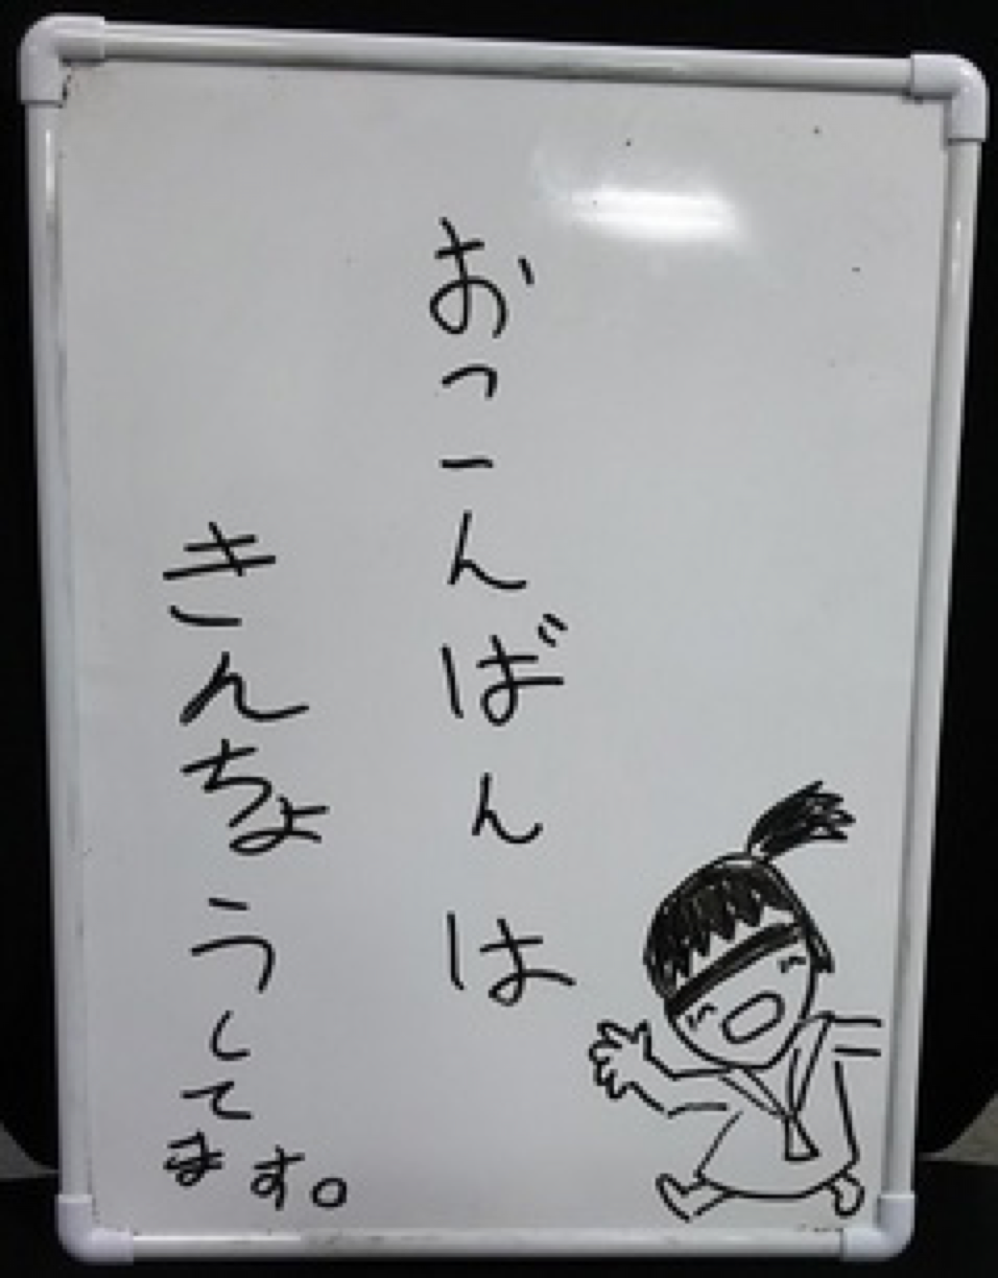 おっーんばんは
きんちょうしてます。